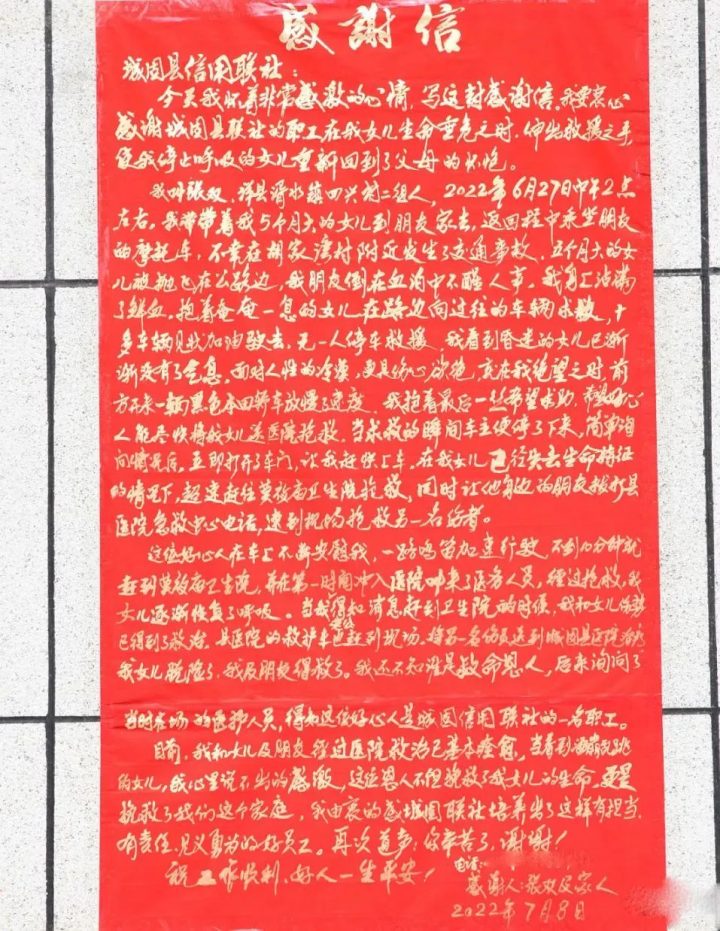 感謝信
城固县信用联社：
今天我怀着非常感激的心情，写这封感谢信。我要衷心
感谢城固县联社的职工在我女儿生命垂危之时，伸出救援之手
使我停止呼吸的女儿重新回到了父母的怀抱。
我叫张双，洋县谢村镇四兴村二组人，2022年6月27日中午2点
左右，我带带着我5个月大的女儿到朋友家去，返回程中乘坐朋友
的摩托车，不幸在胡家湾村附近发生了交通事故，五个月大的女
儿被抛飞在公路边，我朋友倒在血泊中不醒人事。我身上沾满
了鲜血，抱着奄奄一息的女儿在路边向过往的车辆求救，十
多车辆见此加油驶去，无一人停车救援，我看到昏迷的女儿已渐
渐没有了气息，面对人性的冷漠，更是伤心欲绝，就在我绝望之时，前
方开来一辆黑色本田轿车放慢了速度，我抱着最后一丝希望求助，希望好心
人能尽快将我女儿送医院抢救，当求救的瞬间车主便停了下来，简单询
问情况后，立即打开了车门，让我赶快上车，在我女儿已经失去生命特征
的情况下，超速赶往莫爷庙卫生院抢救，同时让他身边的朋友拨打县
医院急救中心电话，速到现场抢救另一名伤者。
这位好心人在车上不断安慰我，一路鸣笛加速行驶，不到10分钟就
赶到莫爷庙卫生院，并在第一时间冲入医院叫来了医务人员，经过抢救，我
女儿逐渐恢复了呼吸。当我得知消息赶到卫生院的时候，我和女儿
已得到了救治，县医院的救护车也赶到现场，将另一名伤员送到城固县医院
我女儿脱险了，我及朋友得救了。我还不知谁是救命恩人，后来询问了
当时在场的医护人员，得知这位好心人是城固信用联社的一名职工。
目前，我和女儿及朋友经过医院救治已基本痊愈，当看到活蹦乱跳
的女儿，我心里说不出的感激，这位恩人不但挽救了我女儿的生命，更是
挽救了我们这个家庭，我由衷的感城固联社培养出了这样有担当，
有责任，见义勇为的好员工。再次道声：你辛苦了，谢谢！
祝工作顺利，好人一生平安！
电话：
感谢人：张双及家人
2022年7月8日